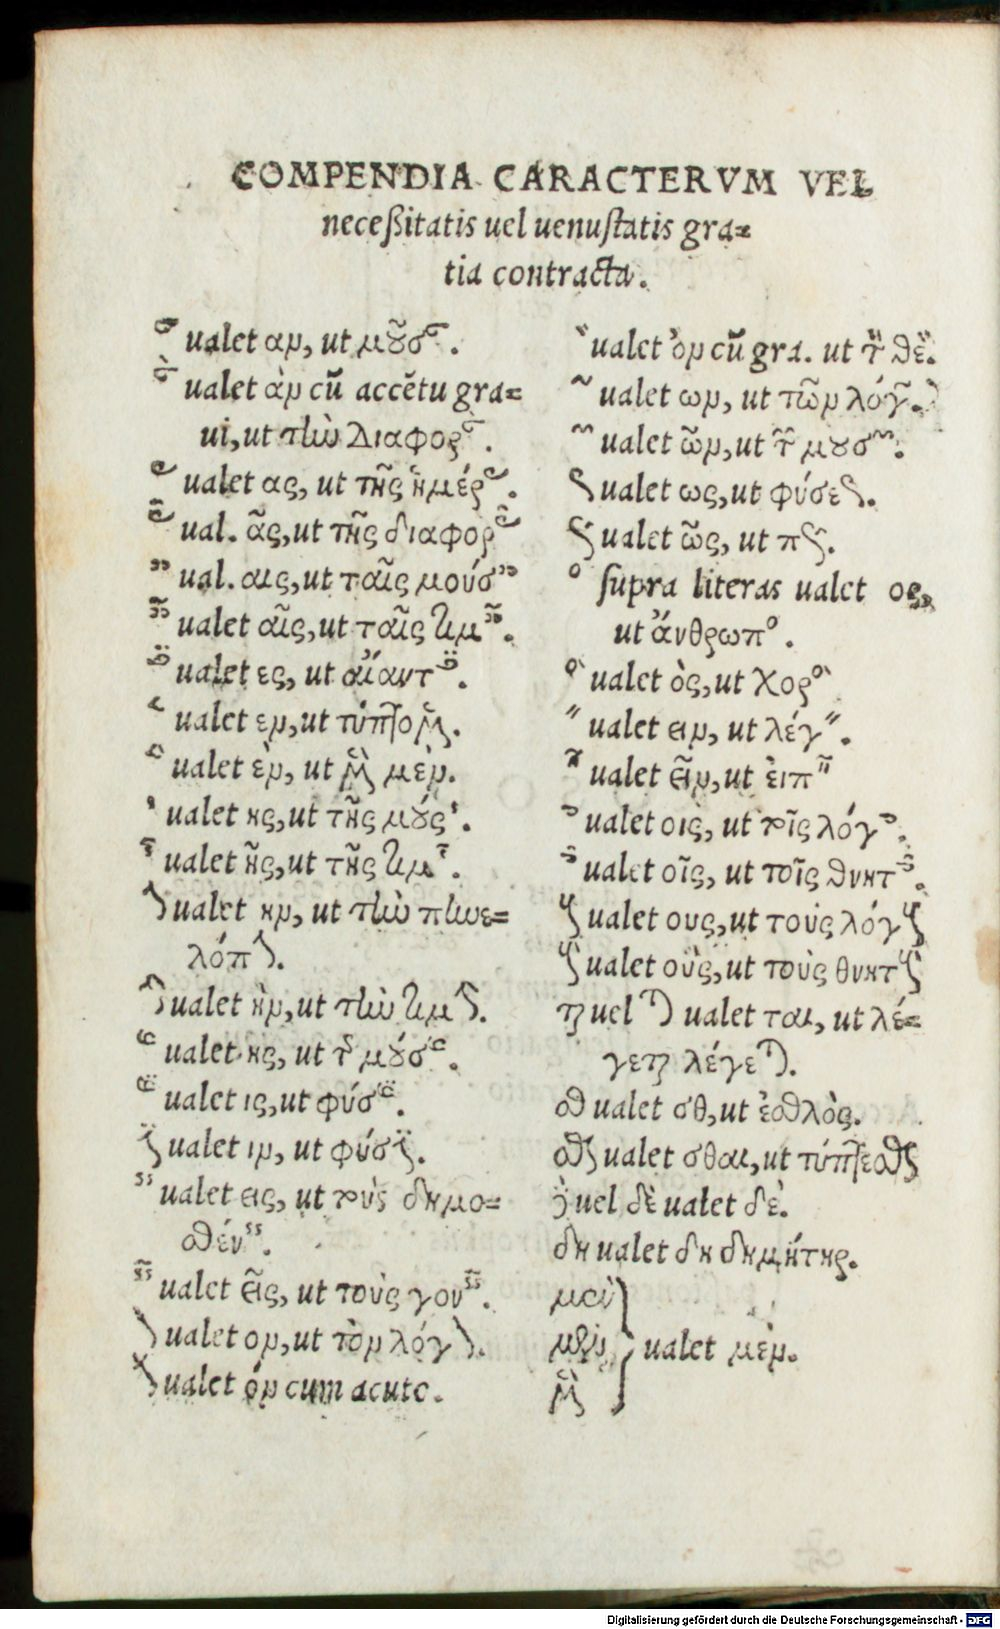 COMPENDIA CARACTERVM VEL
neceßitatis uel uenustatis gra=
tia contracta.
ualet αν, ut μοῦσ
ualet ὰν cū accētu gra=
ui, ut τὴν διαφορ
ualet ας, ut τῆς ἡμέρ
ual. ᾶς, ut τῆς διαφορ
ual. αις, ut ταῖς μούσ
ualet αῖς, ut ταῖς τιμ
ualet ες, ut αἴαντ
ualet εν, ut
ualet ὲν, ut μὲν.
ualet ης, ut τῆς μούς
ualet ῆς, ut τῆς τιμ
ualet ην, ut τὴν πηνε=
λόπ
ualet ὴν, ut τὴν τιμ
ualet ης, ut μούσ
ualet ις, ut φύσ
ualet ιν, ut φύσ
ualet εις, ut τοὺς δημο=
σθέν
ualet εῖς, ut τοὺς γον
ualet ον, ut τὸν λόγ
ualet όν cum acuto.
ualet ὸν cū gra. ut
ualet ων, ut τῶν λόγ
ualet ῶν, ut μουσ
ualet ως, ut φύσε
ualet ῶς, ut π
supra literas ualet ος,
ut ἄνθρωπο.
ualet ὸς, ut χορ
ualet ειν, ut λέγ
ualet εῖν, ut εἰπ
ualet οις, ut τοῖς λόγ
ualet οῖς, ut τοῖς θνητ
ualet ους, ut τοὺς λόγ
ualet οὺς, ut τοὺς θνητ
uel ualet ται, ut λέ=
γε λέγε
ualet σθ, ut ἐσθλὸς.
ualet σθαι, ut τύπτεσθ
uel δὲ ualet δὲ.
δη ualet δη δημήτηρ.
ualet μὲν.
Digitalisierung gefördert durch die Deutsche Forschungsgemeinschaft - DFG